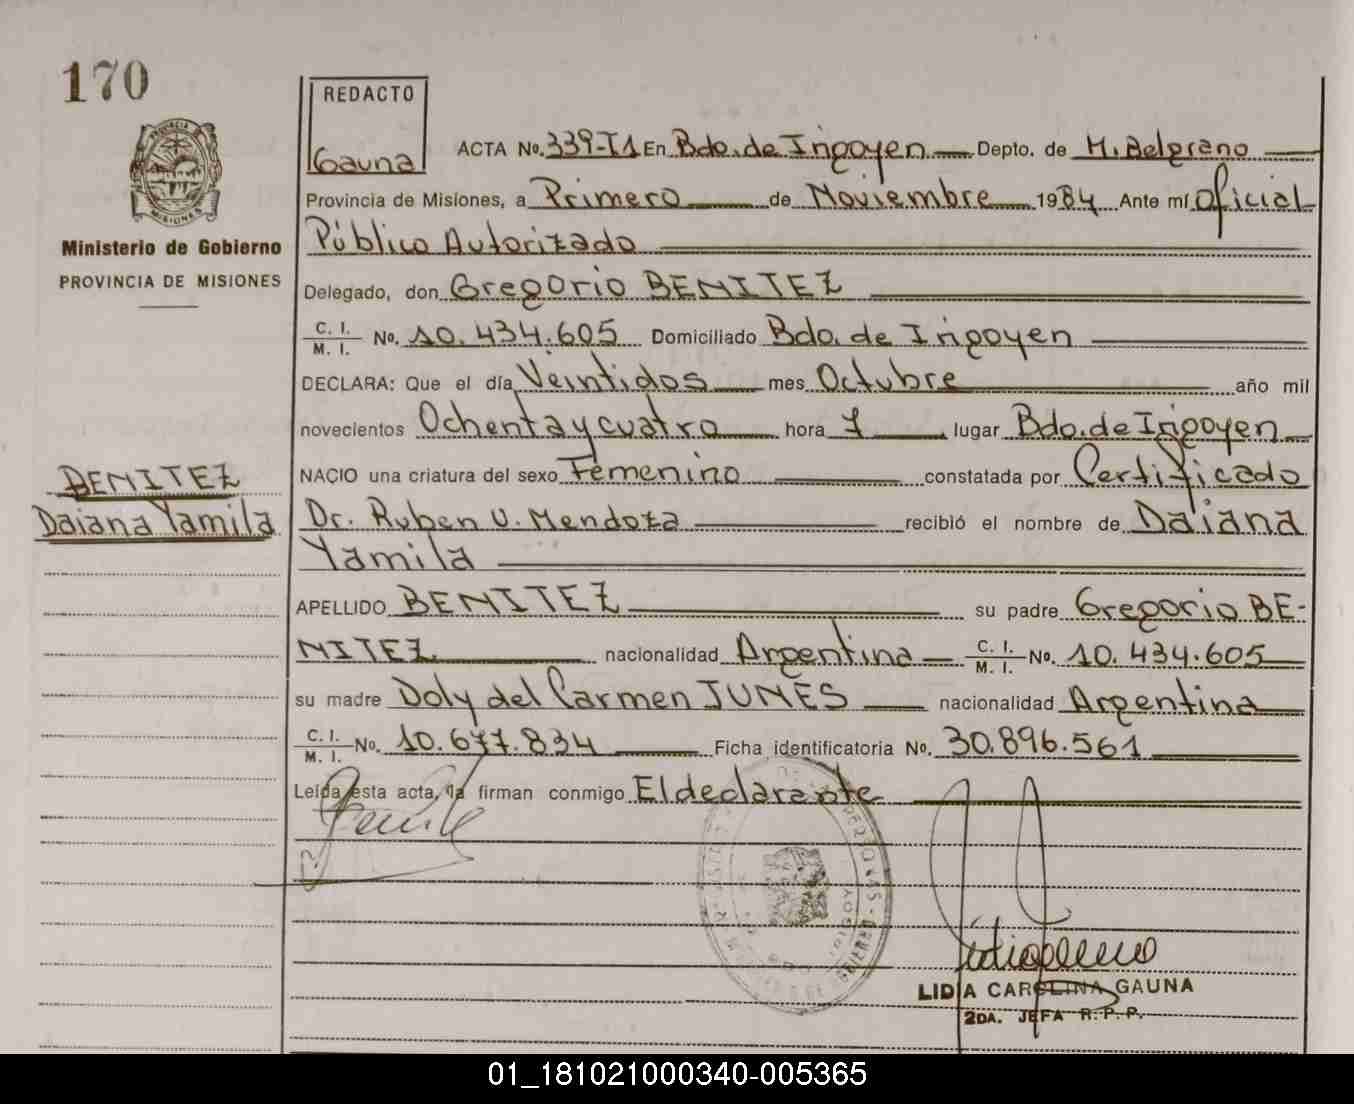 170
REDACTO
Gauna
PROVINCIA
MISIONES
Ministerio de Gobierno
PROVINCIA DE MISIONES
ACTA No. 339-T1 En Bdo. de Irigoyen Depto. de M. Belgrano
Provincia de Misiones, a Primero de Noviembre 1984 Ante mí Oficial
Público Autorizado
Delegado, don Gregorio BENITEZ
C. I.
M. I. No. 10.434.605 Domiciliado Bdo. de Irigoyen
DECLARA: Que el día Veintidos mes Octubre año mil
novecientos Ochenta y cuatro hora 7 lugar Bdo. de Irigoyen
NACIO una criatura del sexo Femenino constatada por Certificado
Dr. Ruben U. Mendoza recibió el nombre de Daiana
Yamila
BENITEZ
Daiana Yamila
APELLIDO BENITEZ su padre Gregorio BE-
NITEZ nacionalidad Argentina C. I.
M. I. No. 10.434.605
su madre Doly del Carmen JUNES nacionalidad Argentina
C. I.
M. I. No. 10.677.834 Ficha identificatoria No. 30.896.561
Leída esta acta, la firman conmigo El declarante
LIDIA CAROLINA GAUNA
2DA. JEFA R.P.P.
01_181021000340-005365